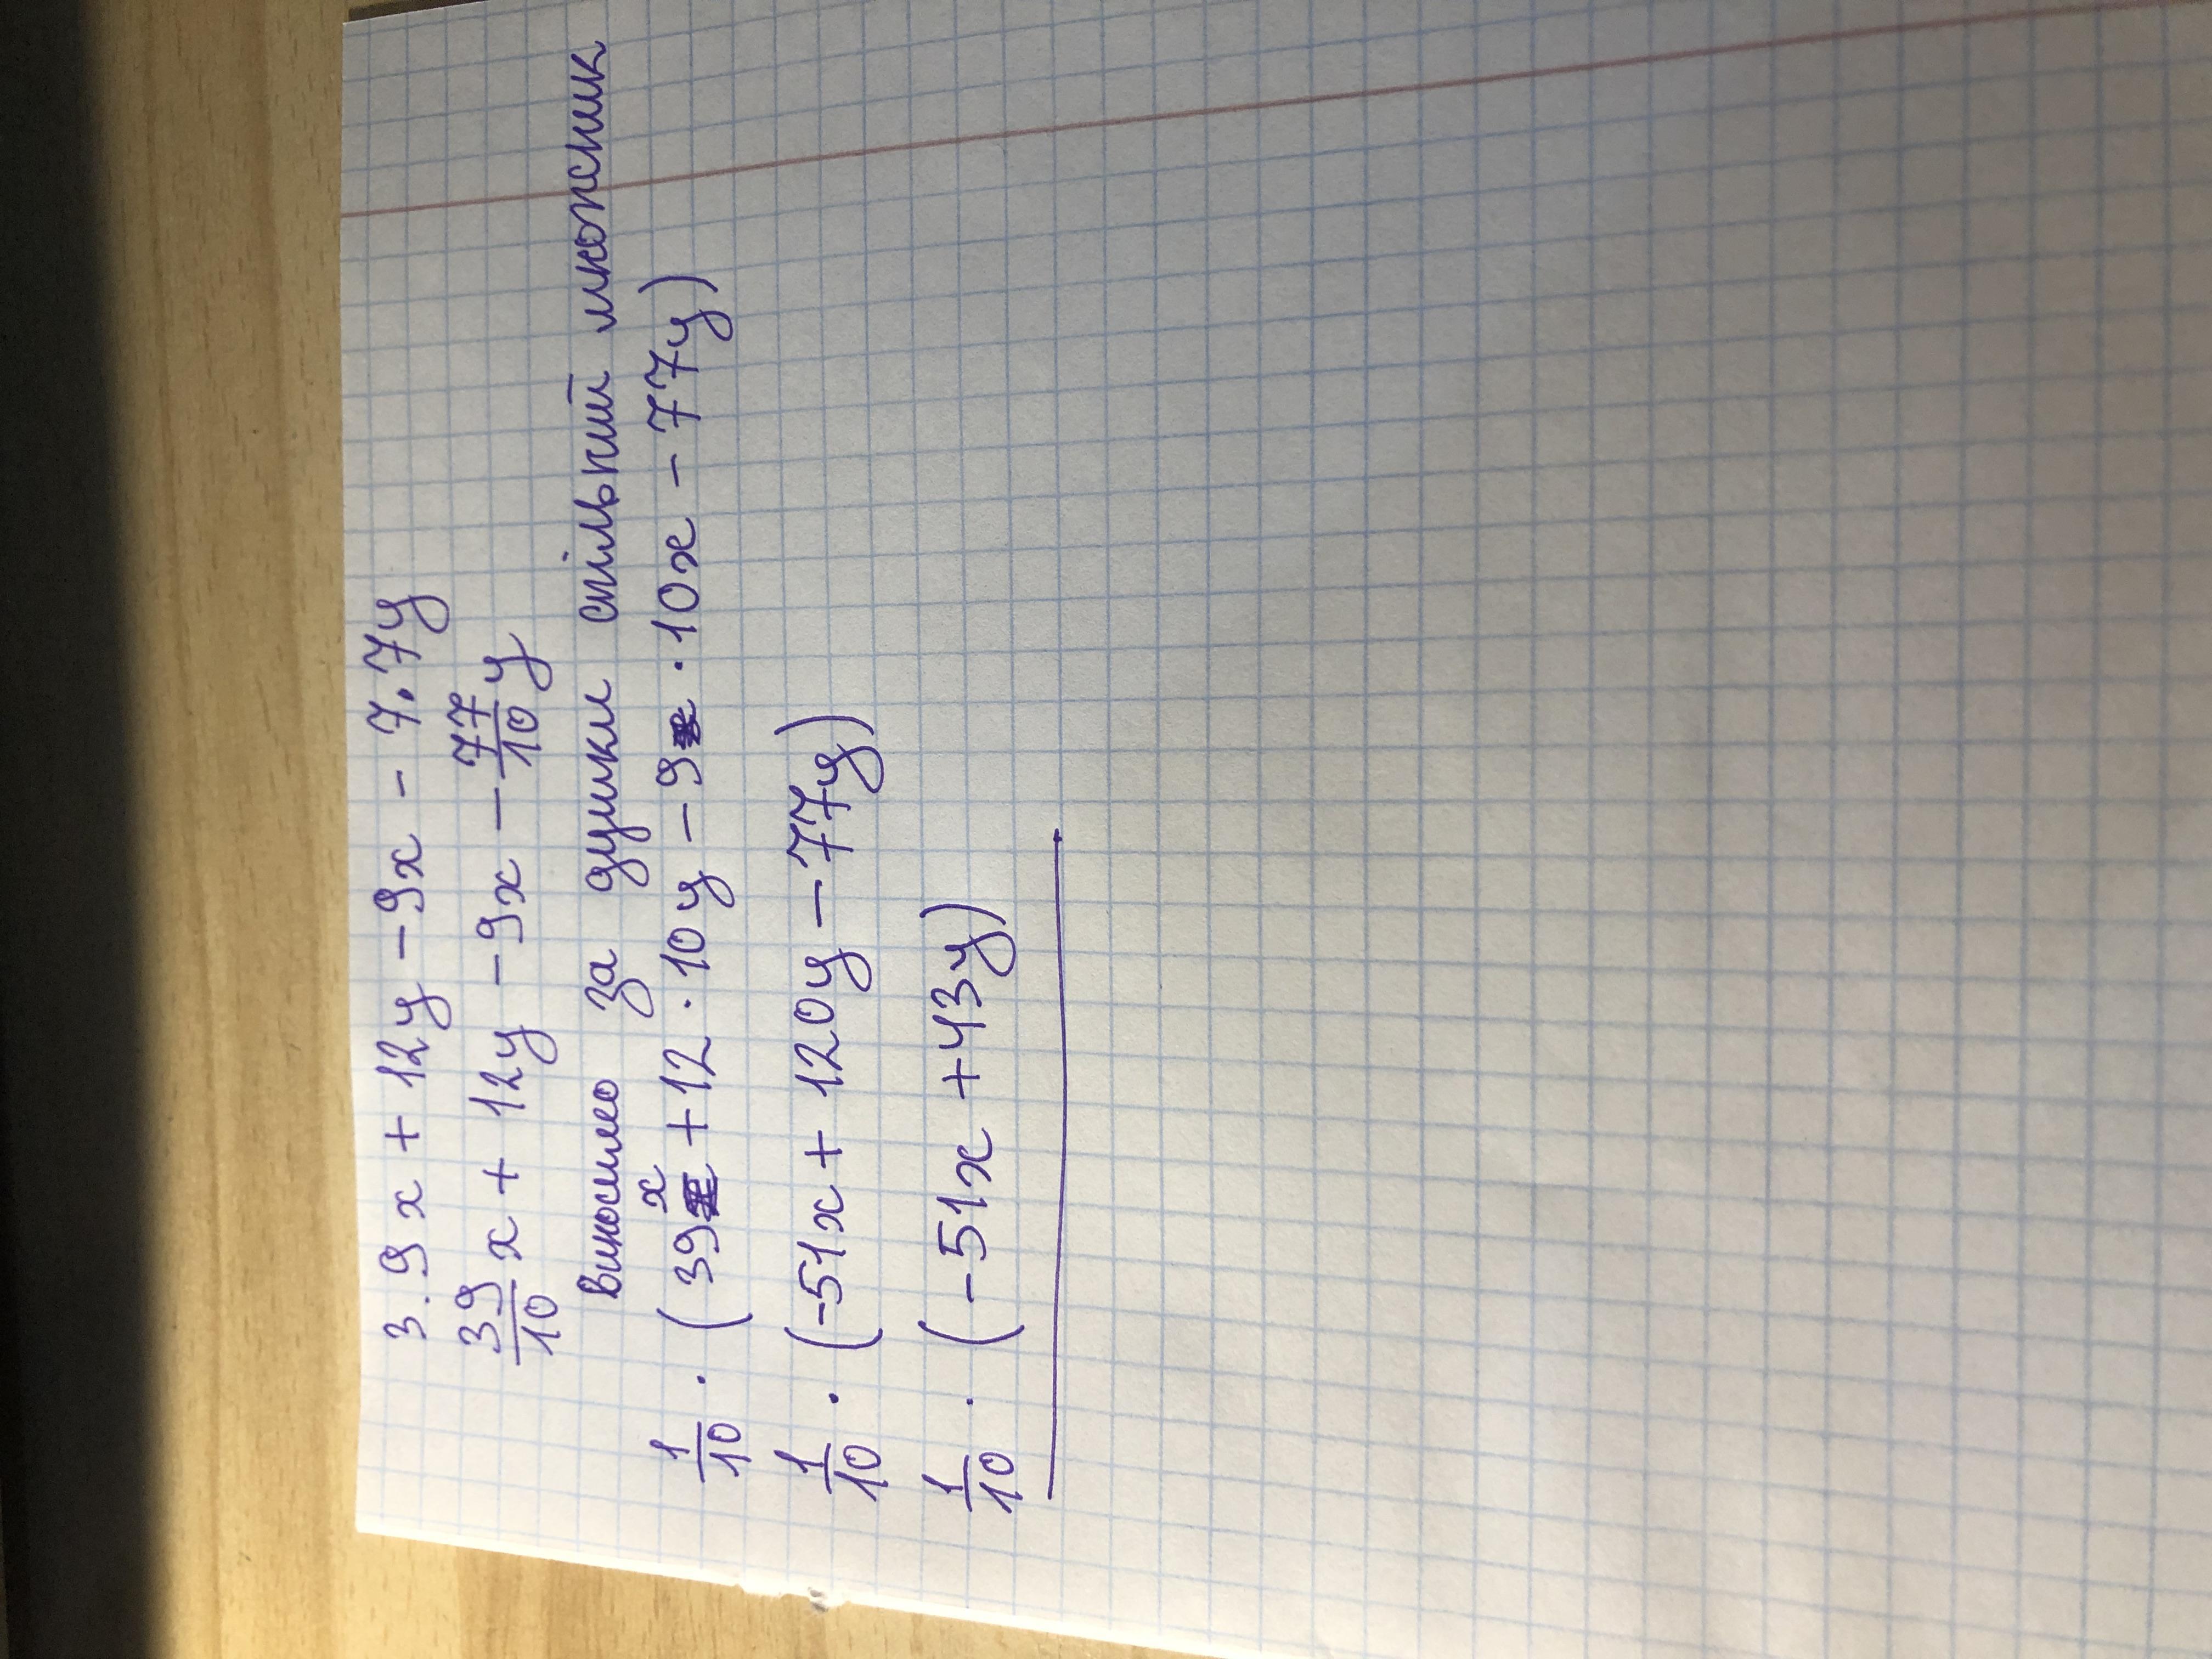 3.9x + 12y - 9x - 7.7y
39/10 x + 12y - 9x - 77/10 y
Виносимо за дужки спільний множник
1/10 · (39x + 12 · 10y - 9 · 10x - 77y)
1/10 · (-51x + 120y - 77y)
1/10 · (-51x + 43y)